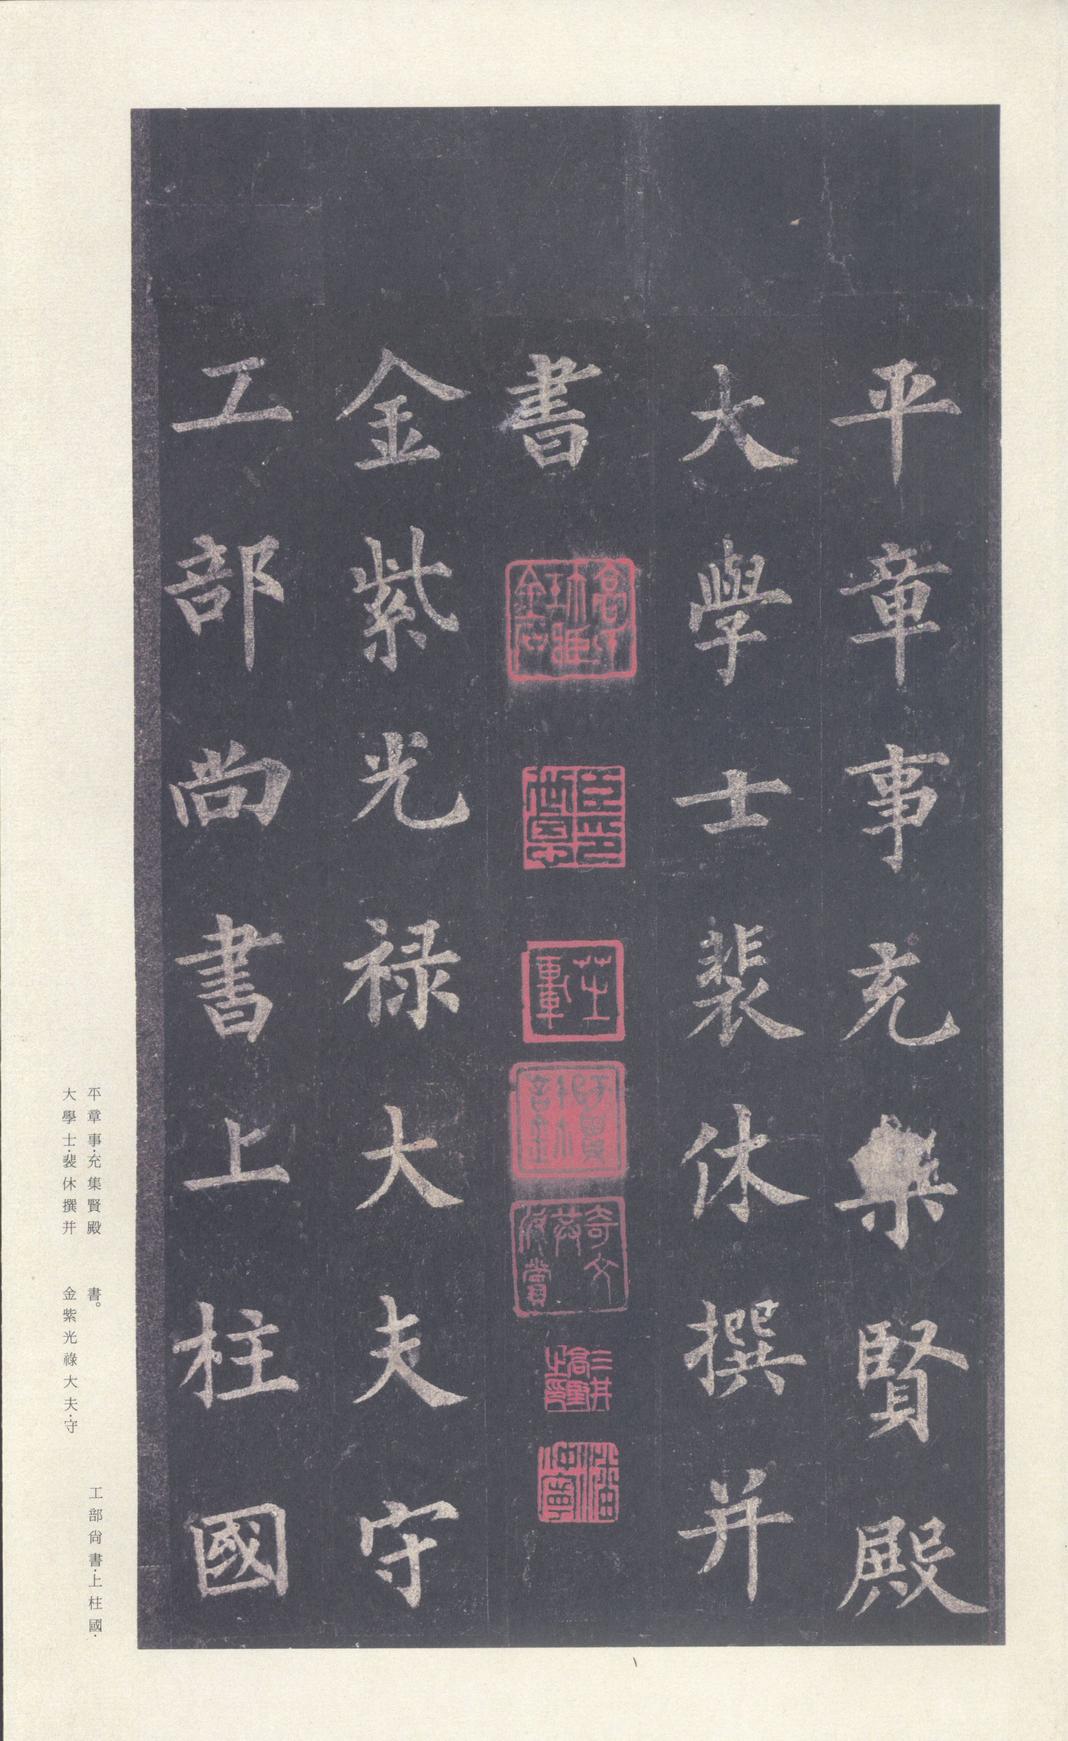 平章事充集賢殿
大學士裴休撰并
書
金紫光祿大夫守
工部尚書上柱國
平章事·充集賢殿
大學士·裴休撰并
書。
金紫光祿大夫·守
工部尚書·上柱國·